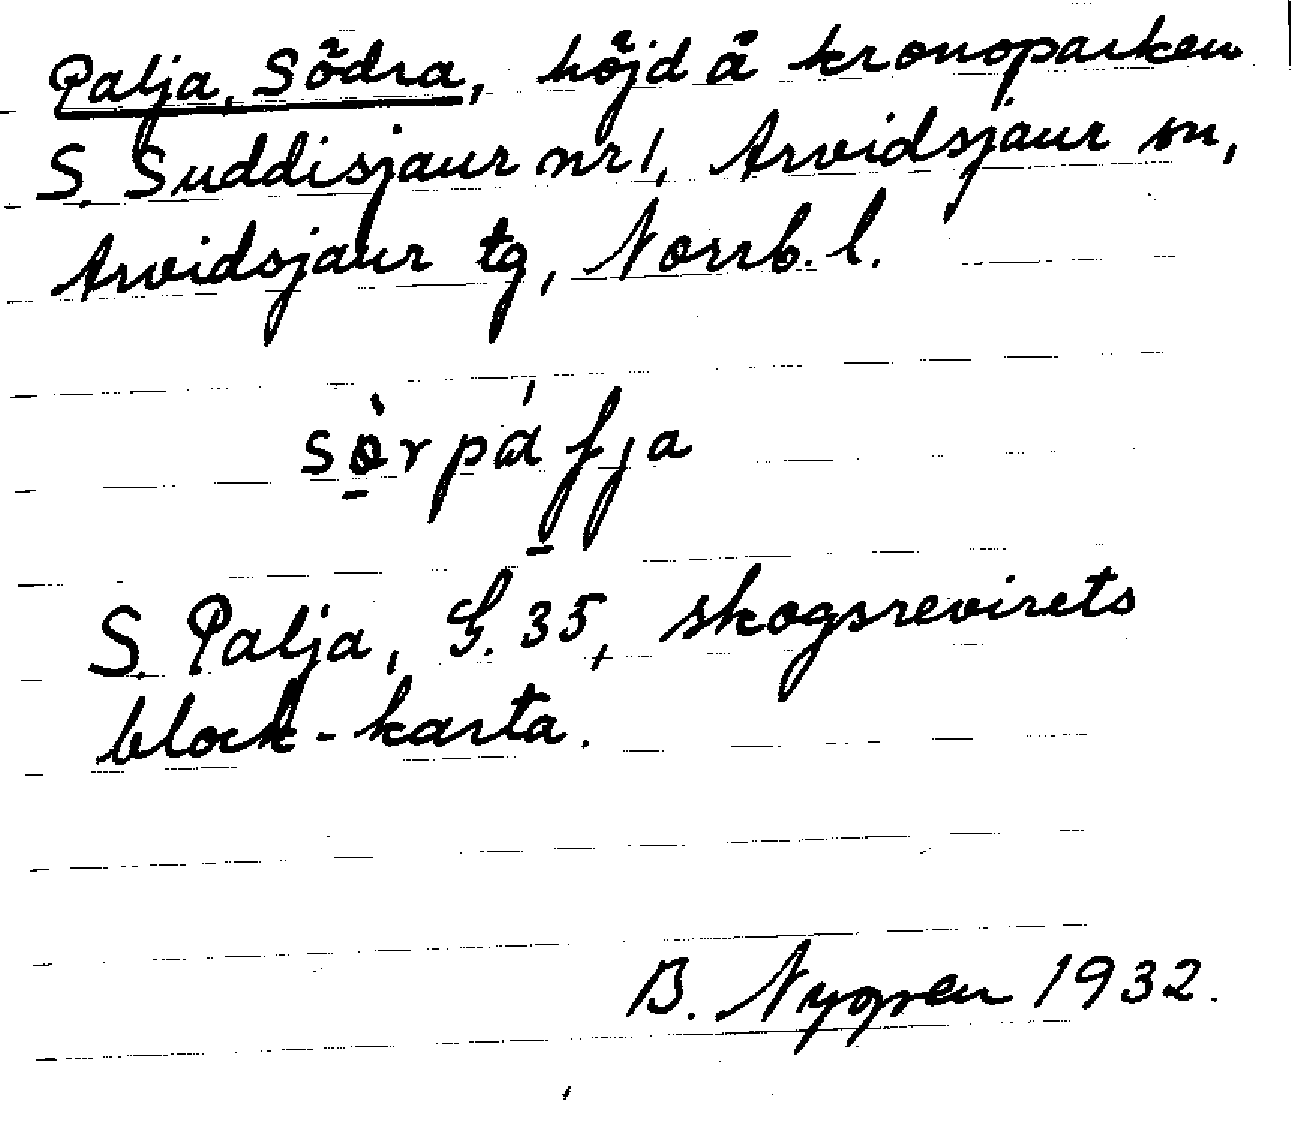 Palja, Södra, höjd å kronoparken
S. Suddisjaur nr 1, Arvidsjaur sn,
Arvidsjaur tg, Norrb. l.
S. Palja, G. 35, skogsrevirets
block-karta.
B. Nygren 1932.